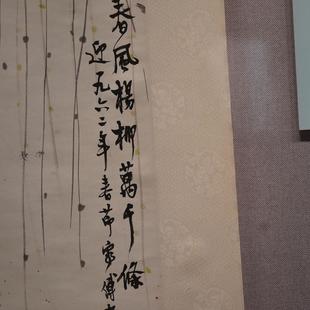 春風楊柳萬千條
迎九六二年春節寫傅